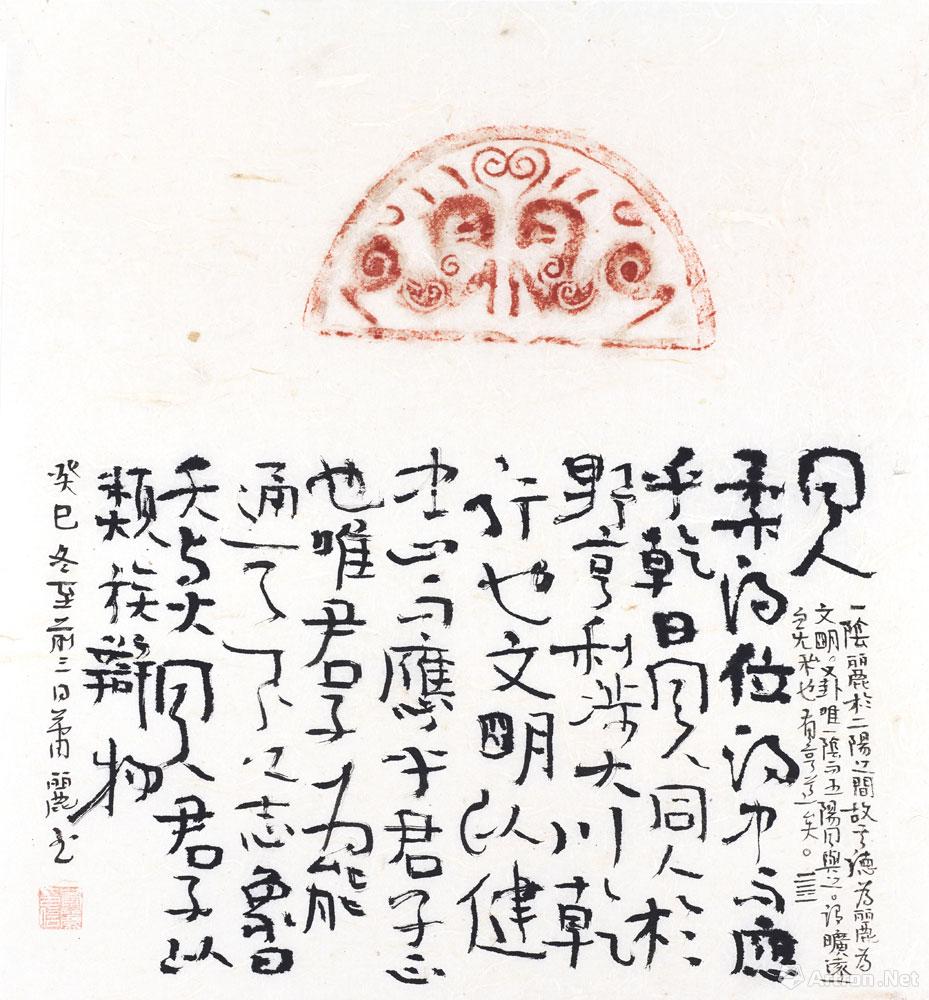 同人
一陰麗於二陽之間故其德為麗為
文明。又卦唯一陰而五陽同與之。謂曠遠
无私也有亨道矣。
柔得位得中而應
乎乾曰同人同人於
野亨利涉大川乾
行也文明以健
中正而應乎君子正
也唯君子为能
通天下之志象曰
天与火同人君子以
類族辯物
癸巳冬至前三日蕭麗书
Artron.Net